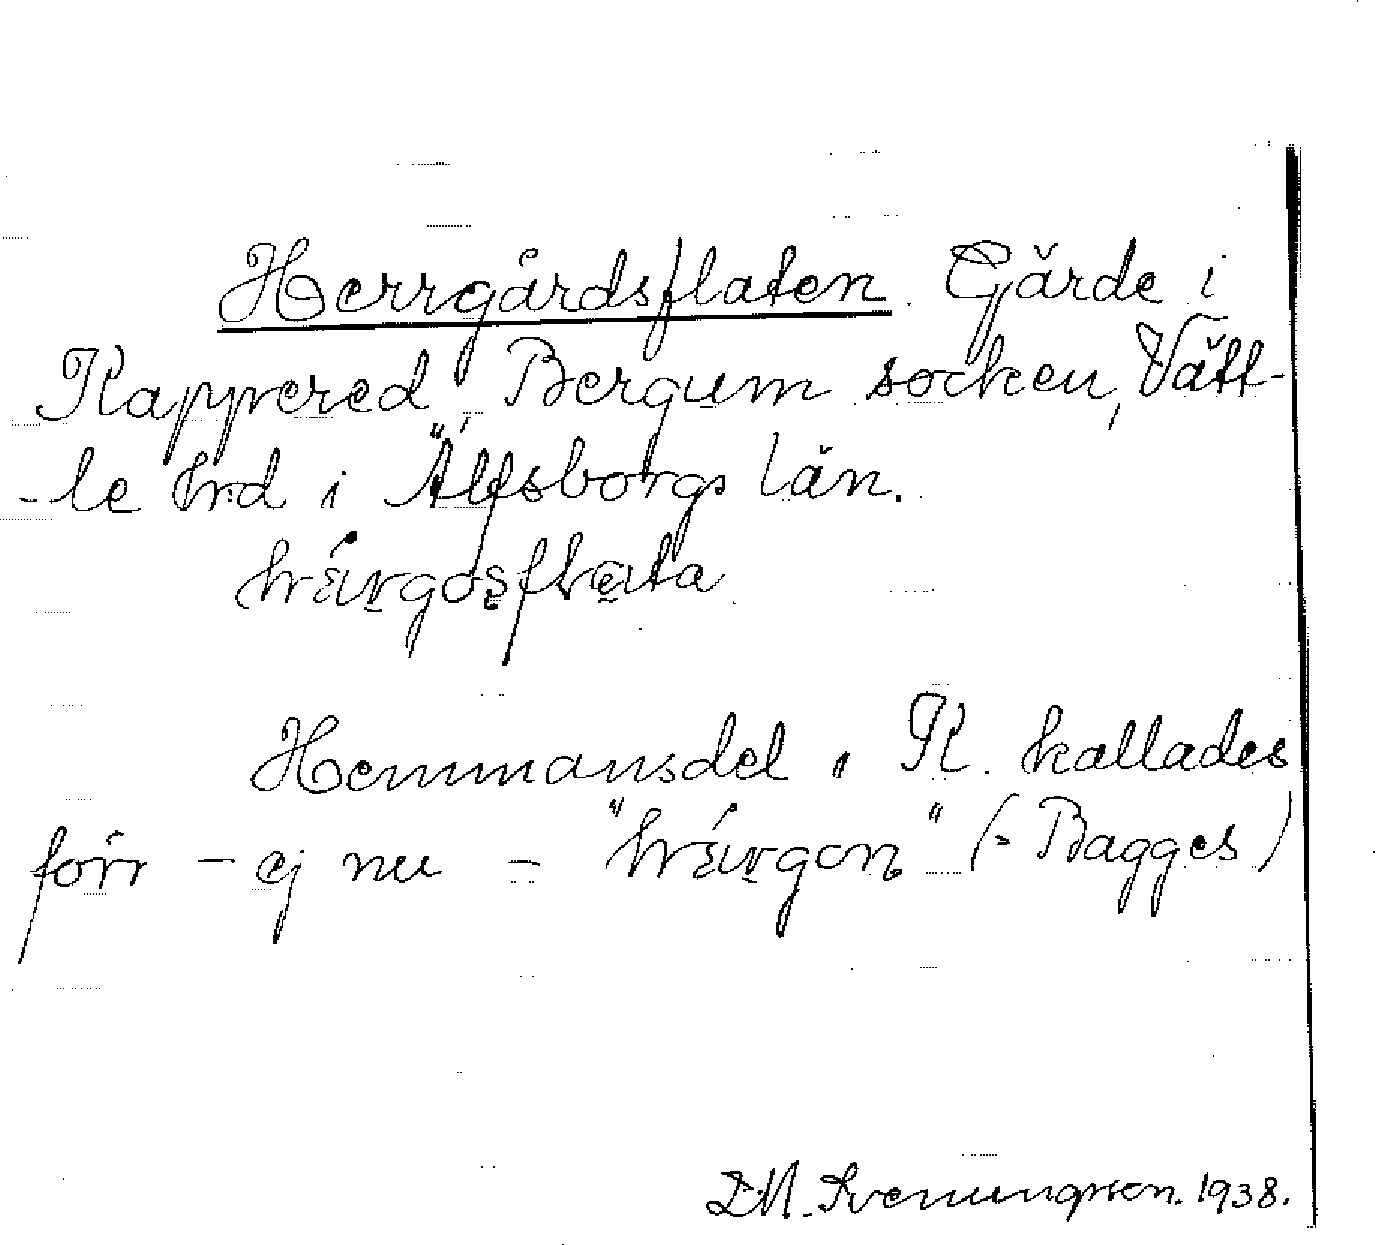 Herrgårdsflaten. Gärde i
Kappered, Bergum socken, Vätt-
-le hrd i Älfsborgs län.

Hemmansdel i K. kallades
förr – ej nu – (= Bagges)
D.M. Svenungsson. 1938.